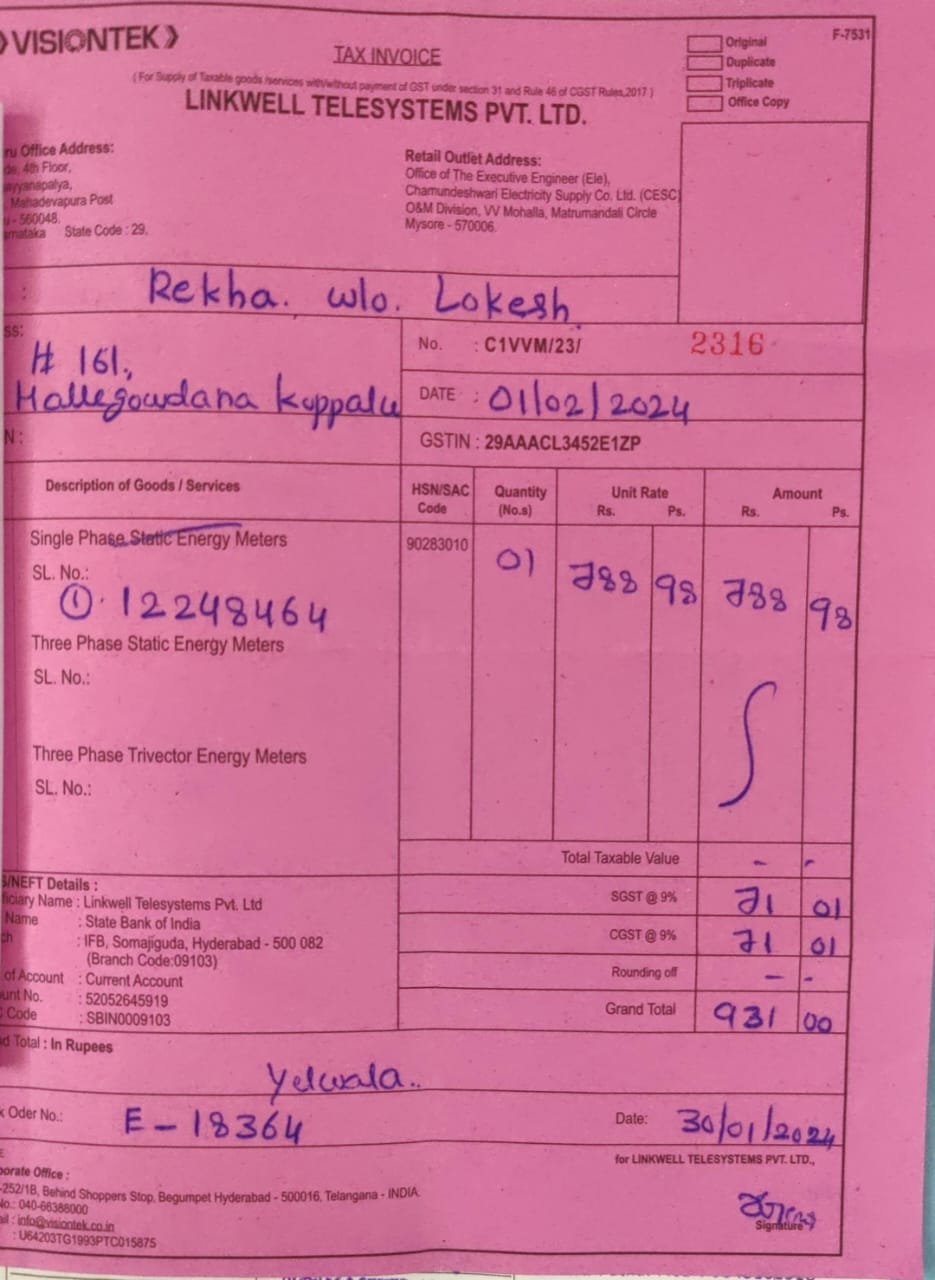 VISIONTEK
F-7531
TAX INVOICE
( For Supply of Taxable goods /services with/without payment of GST under section 31 and Rule 46 of CGST Rules,2017 )
LINKWELL TELESYSTEMS PVT. LTD.
Original
Duplicate
Triplicate
Office Copy
ru Office Address:
de, 4th Floor,
ayyanapalya,
Mahadevapura Post
u - 560048.
rnataka State Code : 29.
Retail Outlet Address:
Office of The Executive Engineer (Ele),
Chamundeshwari Electricity Supply Co. Ltd. (CESC)
O&M Division, VV Mohalla, Matrumandali Circle
Mysore - 570006.
: Rekha. w/o. Lokesh.
ss:
# 161,
Hallegowdana Koppalu
No. : C1VVM/23/ 2316
DATE : 01/02/2024
N :
GSTIN : 29AAACL3452E1ZP
Description of Goods / Services HSN/SAC Code Quantity (No.s) Unit Rate Rs. Ps. Amount Rs. Ps.
Single Phase Static Energy Meters 90283010 01 788 98 788 98
SL. No.:
① 12248464
Three Phase Static Energy Meters
SL. No.:
Three Phase Trivector Energy Meters
SL. No.:
Total Taxable Value - -
S/NEFT Details :
ficiary Name : Linkwell Telesystems Pvt. Ltd
Name : State Bank of India
ch : IFB, Somajiguda, Hyderabad - 500 082
(Branch Code:09103)
of Account : Current Account
unt No. : 52052645919
Code : SBIN0009103
SGST @ 9% 71 01
CGST @ 9% 71 01
Rounding off - -
Grand Total 931 00
d Total : In Rupees
Yelwala..
k Oder No.: E - 18364
Date: 30/01/2024
for LINKWELL TELESYSTEMS PVT. LTD.,
porate Office :
-252/1B, Behind Shoppers Stop, Begumpet Hyderabad - 500016, Telangana - INDIA.
No.: 040-66388000
ail : info@visiontek.co.in
: U64203TG1993PTC015875
Signature